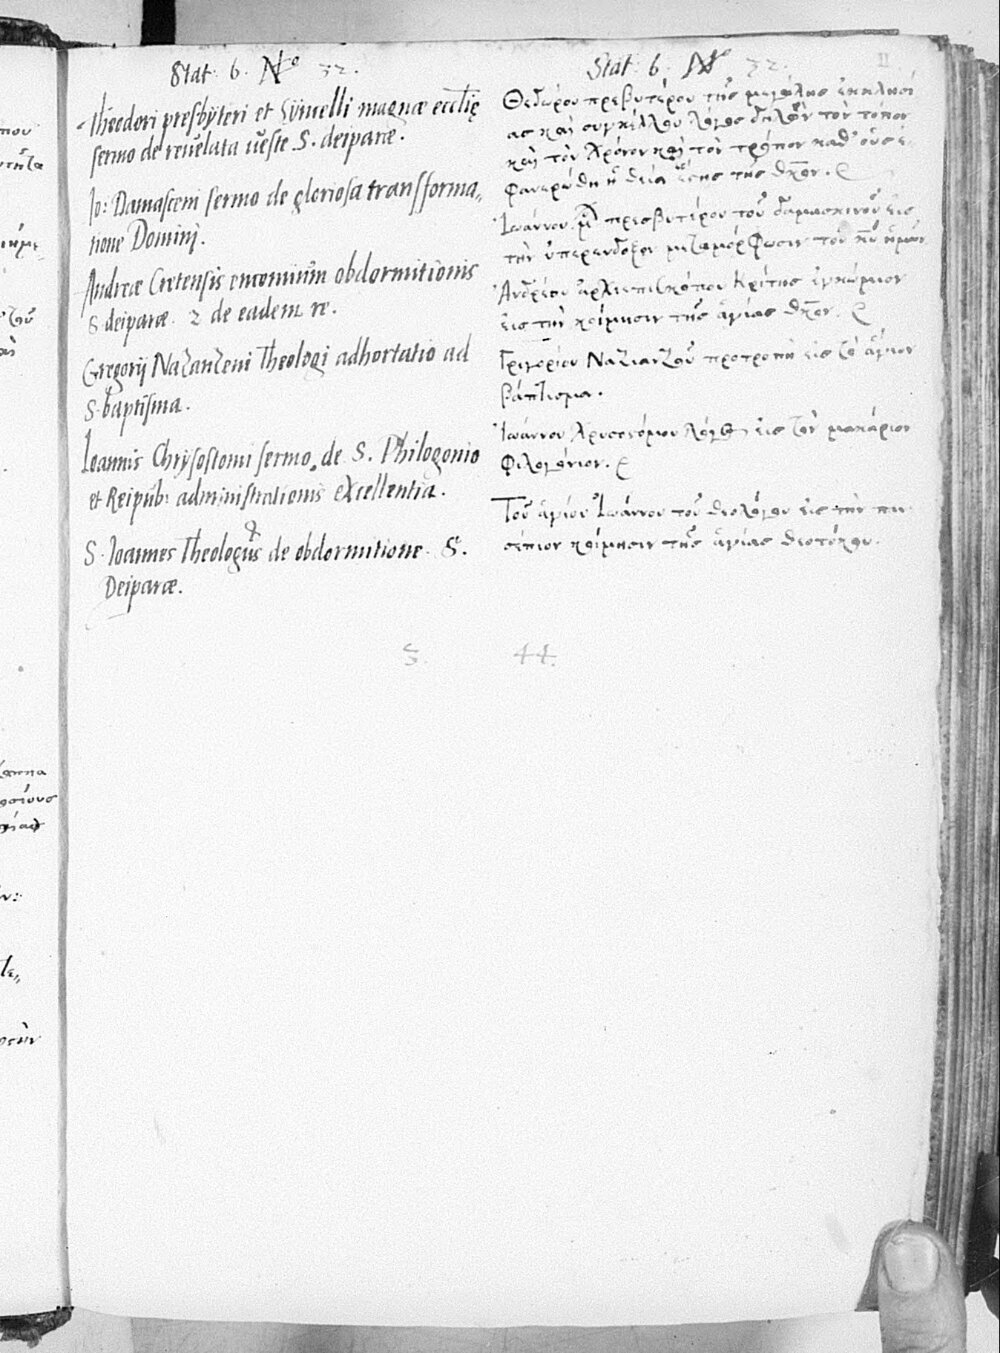 Stat: 6. N° 32.
Theodori presbyteri et Syncelli magnæ eccl̃ię
sermo de reuelata ueste S. deiparæ.
Io: Damasceni sermo de gloriosa transforma„
tione Domini.
Andreæ Cretensis encomiũm obdormitionis
S. deiparæ. 2 de eadem re.
Gregorij Nazanzeni Theologi adhortatio ad
S. baptisma.
Ioannis Chrysostomi sermo de S. Philogonio
et Reipub: administrationis excellentia.
S. Ioannes Theologus de obdormitione S.
Deiparæ.
Stat: 6. N° 32.
II
Θεδώρου πρεβυτέρου τῆς μεγάλης ἐκκλησί
ας καὶ συγκέλλου λόγος δηλῶν τὸν τόπον
καὶ τὸν χρόνον καὶ τὸν τρόπον καθ' οὓς ἐ
φανερώθη ἡ θεία ἐσθὴς τῆς θκ͂ου.
Ἰωάννου πρεσβυτέρου τοῦ δαμασκηνοῦ εἰς
τὴν ὑπερένδοξον μεταμόρφωσιν τοῦ κῦ ἡμῶν
Ἀνδρέου ἀρχιεπισκόπου Κρίτης ἐγκώμιον
εἰς τὴν κοίμησιν τῆς ἁγίας θκ͂ου.
Γρηγορίου Ναζιανζοῦ προτροπὴ εἰς τὸ ἅγιον
βάπτισμα.
Ἰωάννου Χρυσοστόμου λόγος εἰς τὸν μακάριον
Φιλογόνιον.
Τοῦ ἁγίου Ἰωάννου τοῦ θεολόγου εἰς τὴν παν
σέπτον κοίμησιν τῆς ἁγίας θεοτόκου.
S. 44.